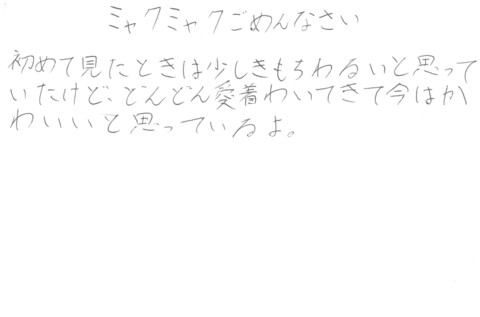 ミャクミャクごめんなさい
初めて見たときは少しきもちわるいと思って
いたけど、どんどん愛着わいてきて今はか
わいいと思っているよ。